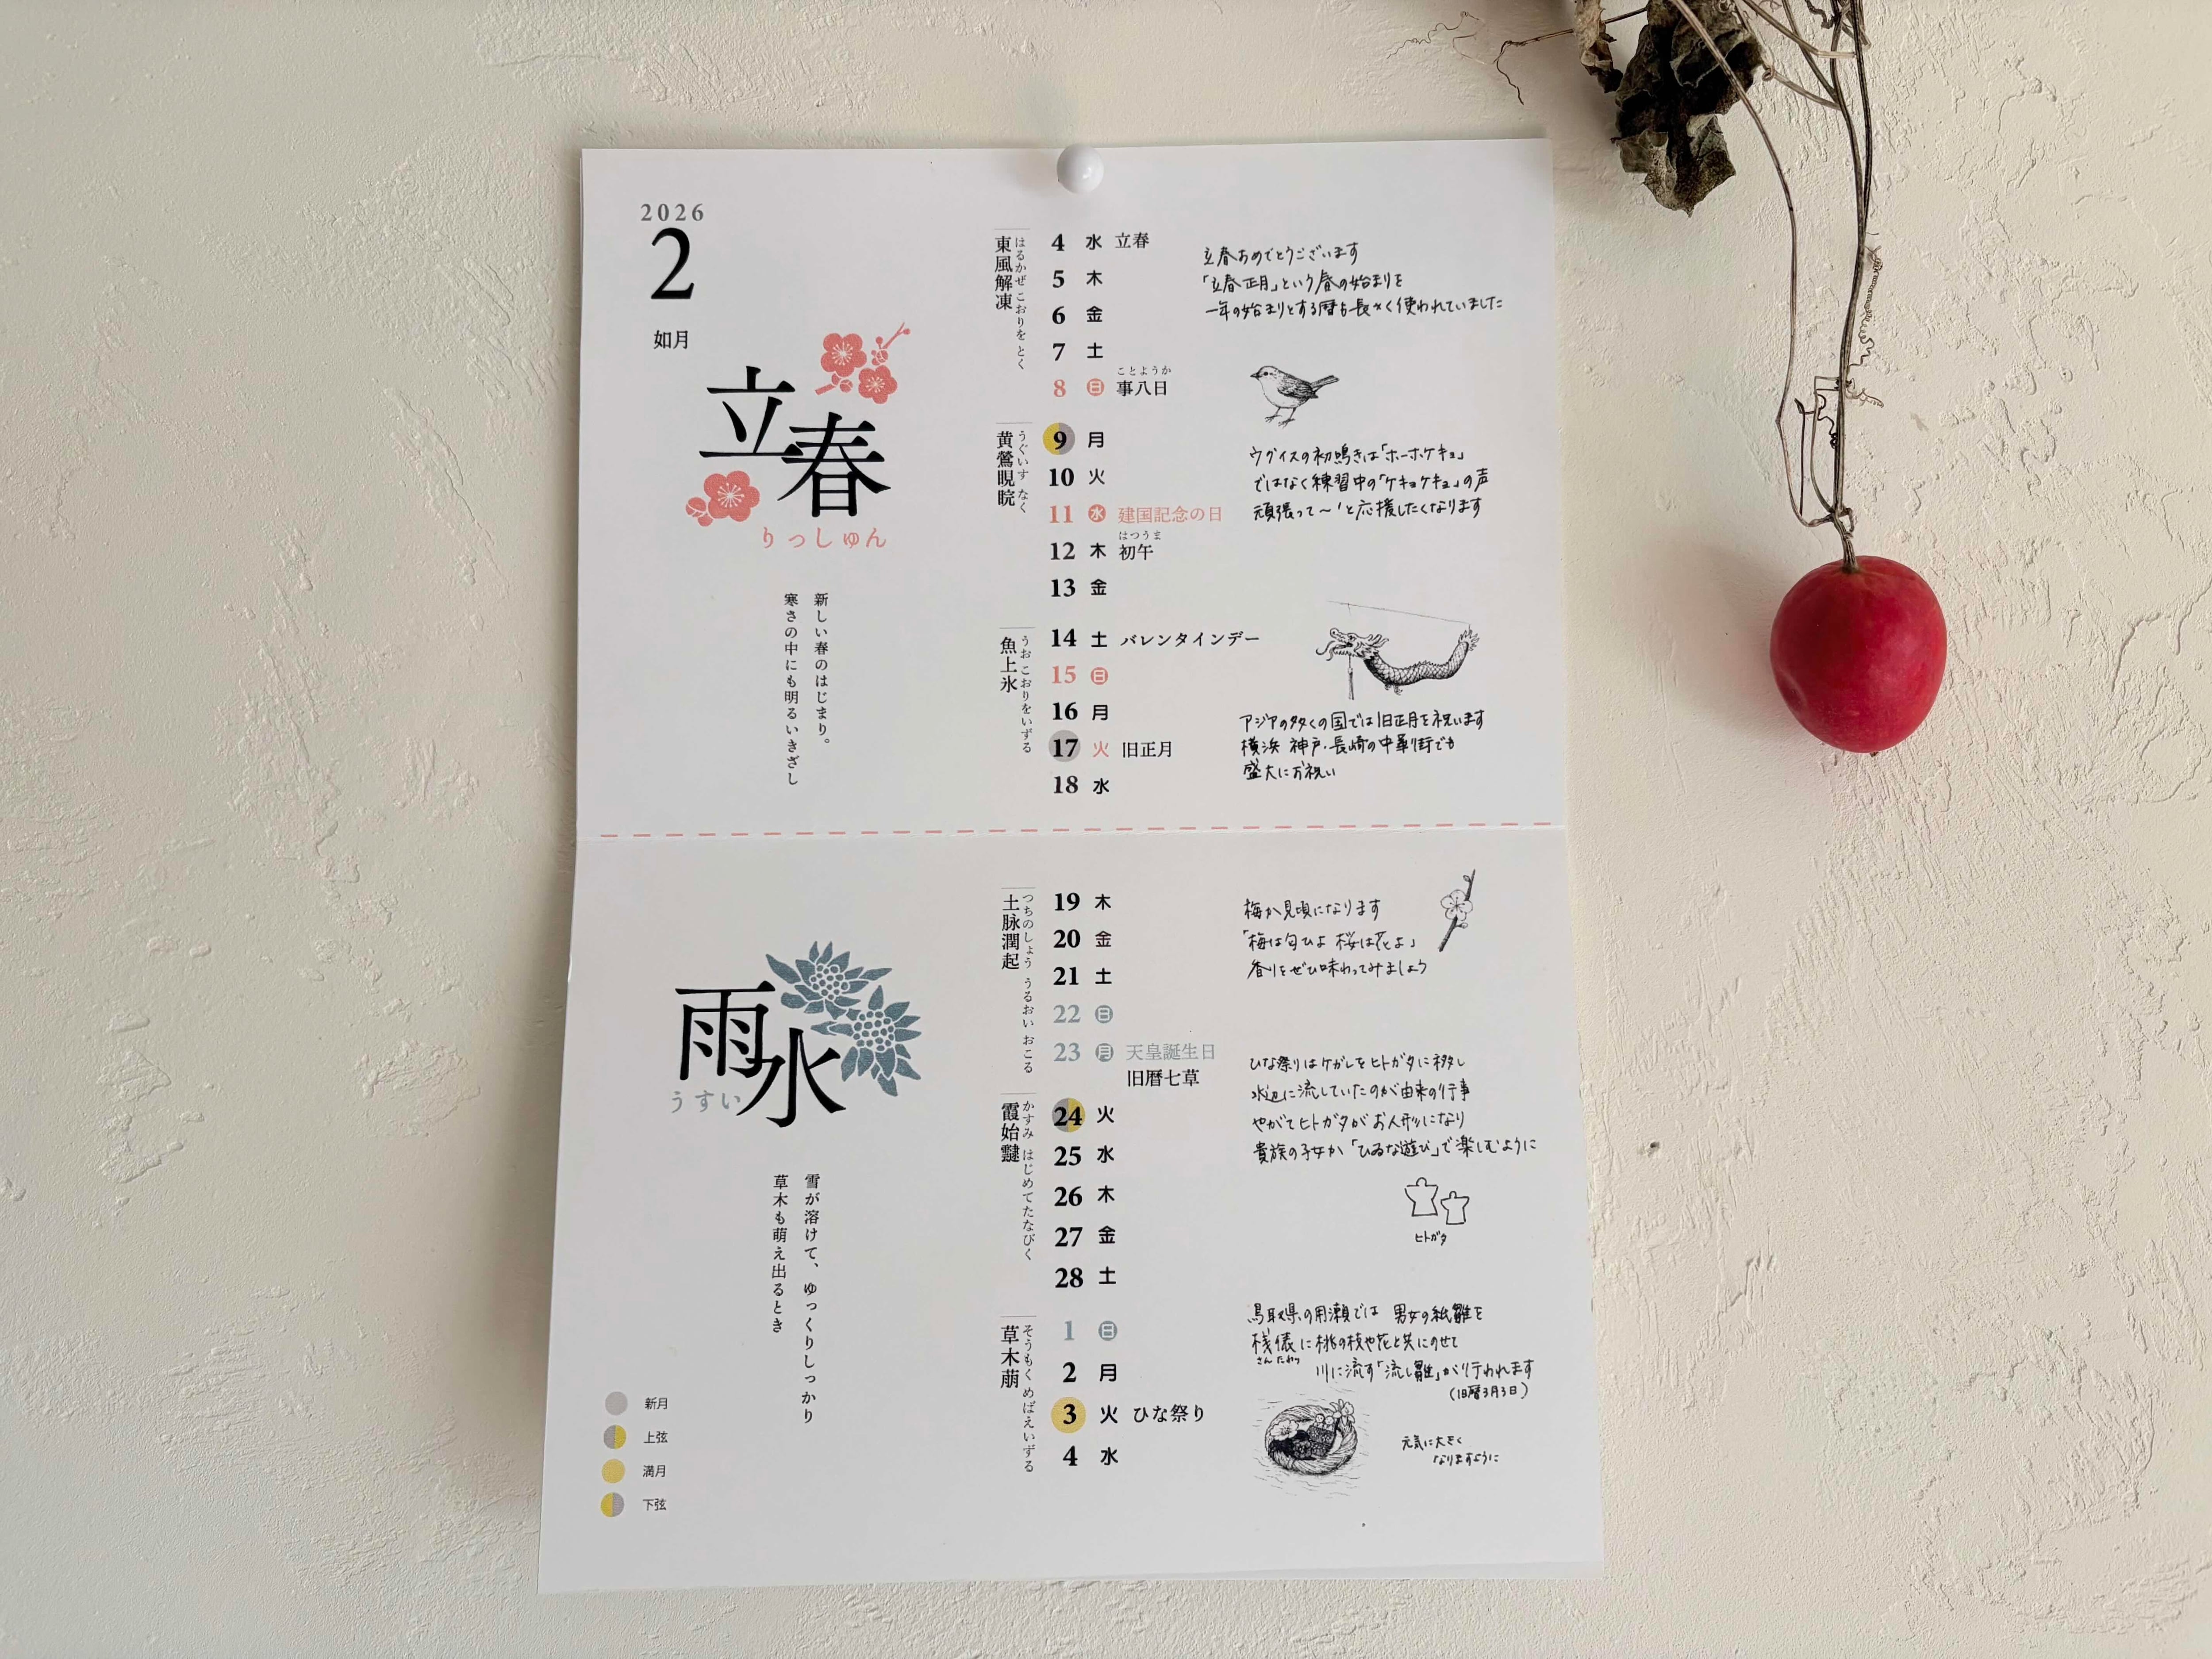 2026
2
如月
立春
りっしゅん
新しい春のはじまり。
寒さの中にも明るいきざし
東風解凍
はるかぜ こおりを とく
4 水 立春
5 木
6 金
7 土
ことようか
8 日 事八日
立春おめでとうございます
「立春正月」という春の始まりを
一年の始まりとする暦も長らく使われていました
黄鶯睍睆
うぐいす なく
9 月
10 火
11 水 建国記念の日
はつうま
12 木 初午
13 金
ウグイスの初鳴きは「ホーホケキョ」
ではなく練習中の「ケキョケキョ」の声
頑張って〜!と応援したくなります
魚上氷
うお こおりをいずる
14 土 バレンタインデー
15 日
16 月
17 火 旧正月
18 水
アジアの多くの国では旧正月を祝います
横浜 神戸・長崎の中華街でも
盛大にお祝い
雨水
うすい
雪が溶けて、ゆっくりしっかり
草木も萌え出るとき
土脉潤起
つちのしょう うるおい おこる
19 木
20 金
21 土
22 日
23 月 天皇誕生日
旧暦七草
梅が見頃になります
「梅は匂ひよ 桜は花よ」
香りをぜひ味わってみましょう
霞始靆
かすみ はじめてたなびく
24 火
25 水
26 木
27 金
28 土
ひな祭りはケガレをヒトガタに移し
水辺に流していたのが由来の行事
やがてヒトガタがお人形になり
貴族の子女が「ひゐな遊び」で楽しむように
ヒトガタ
草木萠
そうもく めばえいずる
1 日
2 月
3 火 ひな祭り
4 水
鳥取県の用瀬では 男女の紙雛を
桟俵に桃の枝や花と共にのせて
さんだわら
川に流す「流し雛」が行われます
(旧暦3月3日)
元気に大きく
なりますように
新月
上弦
満月
下弦